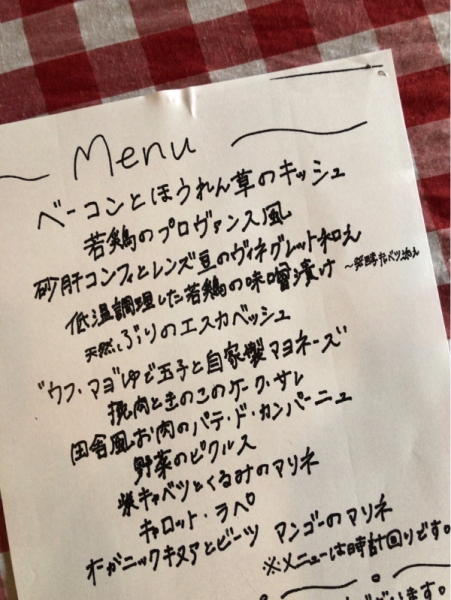 Menu
ベーコンとほうれん草のキッシュ
若鶏のプロヴァンス風
砂肝コンフィとレンズ豆のヴィネグレット和え
低温調理した若鶏の味噌漬け
天然ぶりのエスカベッシュ
"ウフ・マヨ"ゆで玉子と自家製マヨネーズ
挽肉ときのこのケーク・サレ
田舎風お肉のパテ・ド・カンパーニュ
野菜のピクルス
紫キャベツとくるみのマリネ
キャロット・ラペ
オーガニックキヌアとビーツ マンゴーのマリネ
※メニューは時計回りです。
ざいます。